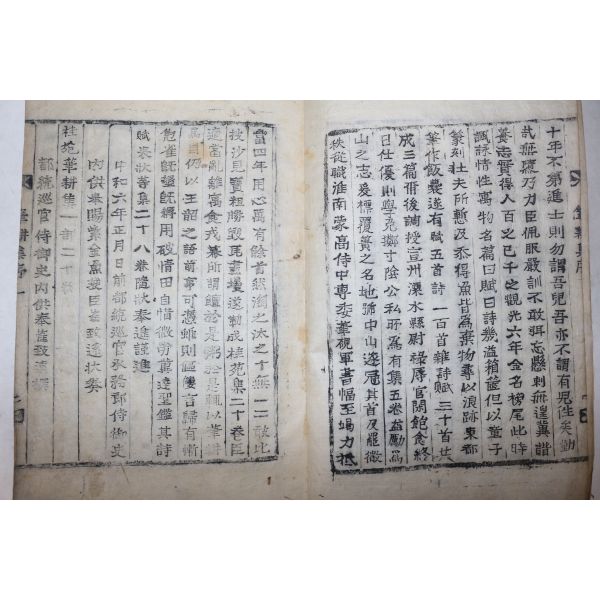 十年不第進士則勿謂吾兒吾亦不謂有兒往矣勤
哉無隳乃力臣佩服嚴訓不敢弭忘懸刺無遑冀諧
養志實得人百之己千之觀光六年金名榜尾此時
諷詠情性寓物名篇曰賦曰詩幾溢箱篋但以童子
篆刻壯夫所慚及忝得魚皆爲棄物尋以浪跡東都
筆作飯囊遂有賦五首詩一百首雜詩賦三十首共
成三篇爾後調授宣州溧水縣尉祿厚官閒飽食終
日仕優則學免擲寸陰公私所爲有集五卷益勵爲
山之志爰標覆簣之名地號中山遂冠其首及罷微
秩從職淮南蒙高侍中專委筆硯軍書輻至竭力抵
當四年用心萬有餘首然淘之汰之十無一二敢比
披沙見寶粗勝毀瓦畫墁遂勒成桂苑集二十卷臣
適當亂離寓食戎幕所謂饘於是粥於是輒以筆耕
爲目仍以王韶之語前事可憑雖則傴僂言歸有慚
鳧雀旣墾旣耨用破情田自惜微勞冀達聖鑑其詩
賦表狀等集二十八卷隨狀奉進謹進
中和六年正月日前都統巡官承務郎侍御史
內供奉賜紫金魚袋臣崔致遠狀奏
桂苑筆耕集一部二十卷
都統巡官侍御史內供奉崔致遠撰